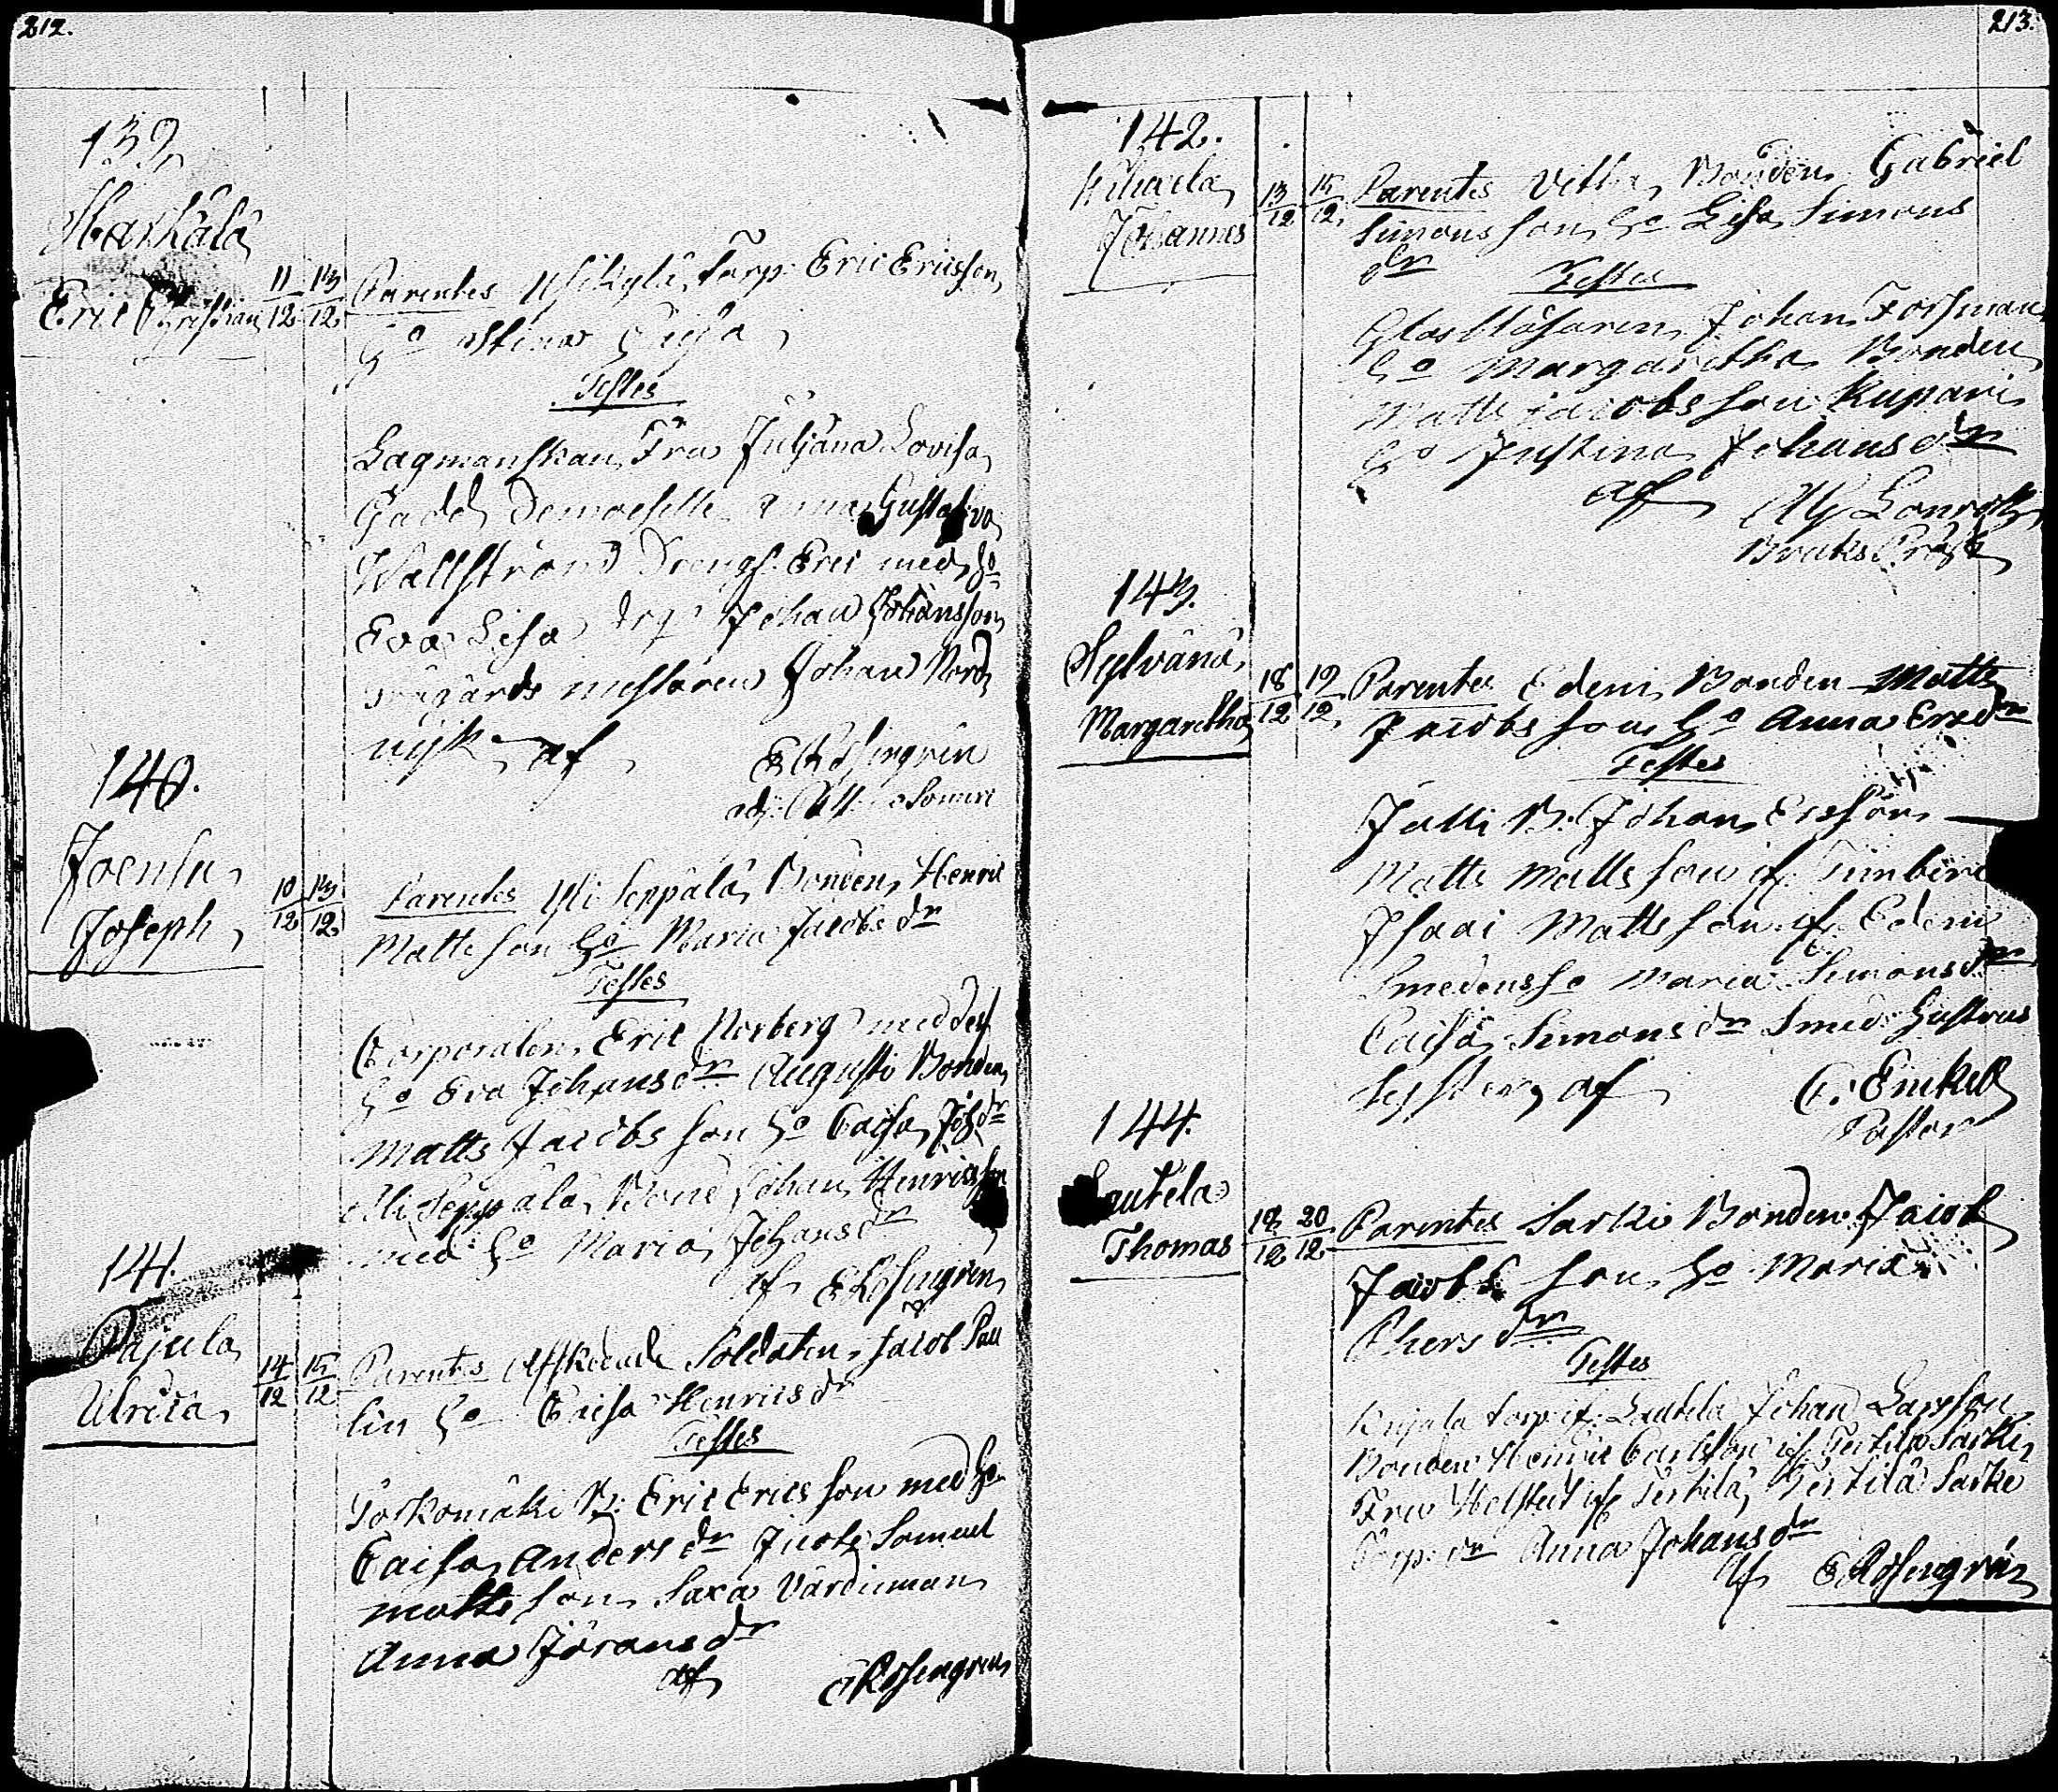 212.
139.
Harkälä
Eric Christian
11/12 13/12
Parentes Torp. Eric Ericsson
Ho Stina Caisa
Testes
Lagmanskan Fru Juljana Lovisa
Gadd, Demoiselle Anna Gustava
Wallström Drengs. Eric med Ho
Eva Lisa Johan Johansson
mästaren Johan Nord
af E Rosengrén
adj: Past: Somero
140.
Joensu
Joseph
10/12 13/12
Parentes Yli Seppälä Bonden Henric
Mattsson Ho Maria Jacobs dr
Testes
Corporalen Eric Norberg med dess
Ho Eva Johans dr Augusti Bonden
Matts Jacobs son Ho Caisa Joh dr
Yli Seppälä Bond Johan Henricsson
med Ho Maria Johans dr
af E Rosengren
141.
Pajula
Ulrica
14/12 15/12
Parentes Afskedade Soldaten Jacob Pau
lin Ho Caisa Henrics dr
Testes
B: Eric Erics son med Ho
Caisa Anders dr Samuel
Matts son Saxa Värdinnan
Anna Jörans dr
af E Rosengren
213.
142.
Kihaela
Johannes
13/12 15/12
Parentes Bonden Gabriel
Simons son Ho Lisa Simons
dr
Testes
Glasblåsaren Johan Forsman
Ho Margaretha Bonden
Matts Jacobs son Kupari
Ho Justina Johans dr
af Lönroth
Bruks Präst
143.
Sylvänä
Margaretha
18/12 19/12
Parentes Edeni Bonden Matts
Jacobs son Ho Anna Ers dr
Testes
Jalli B: Johan Ersson
Matts Matts son if:
Isaac Matts son if Edeni
Smedens Ho Maria Simons dr
Caisa Simons dr Smed: Hustrus
syster af C: Enkell
Pastor
144.
Lautela
Thomas
18/12 20/12
Parentes Sarki Bonden Jacob
Jacobs son Ho Maria
Phers dr
Testes
torp: if: Lautela Johan Larsson
Bonden Henric Carlsson if Tertilä Sarki
Fru if Tertilä, Tertilä Sarki
Torp: dr Anna Johans dr
af E Rosengrén